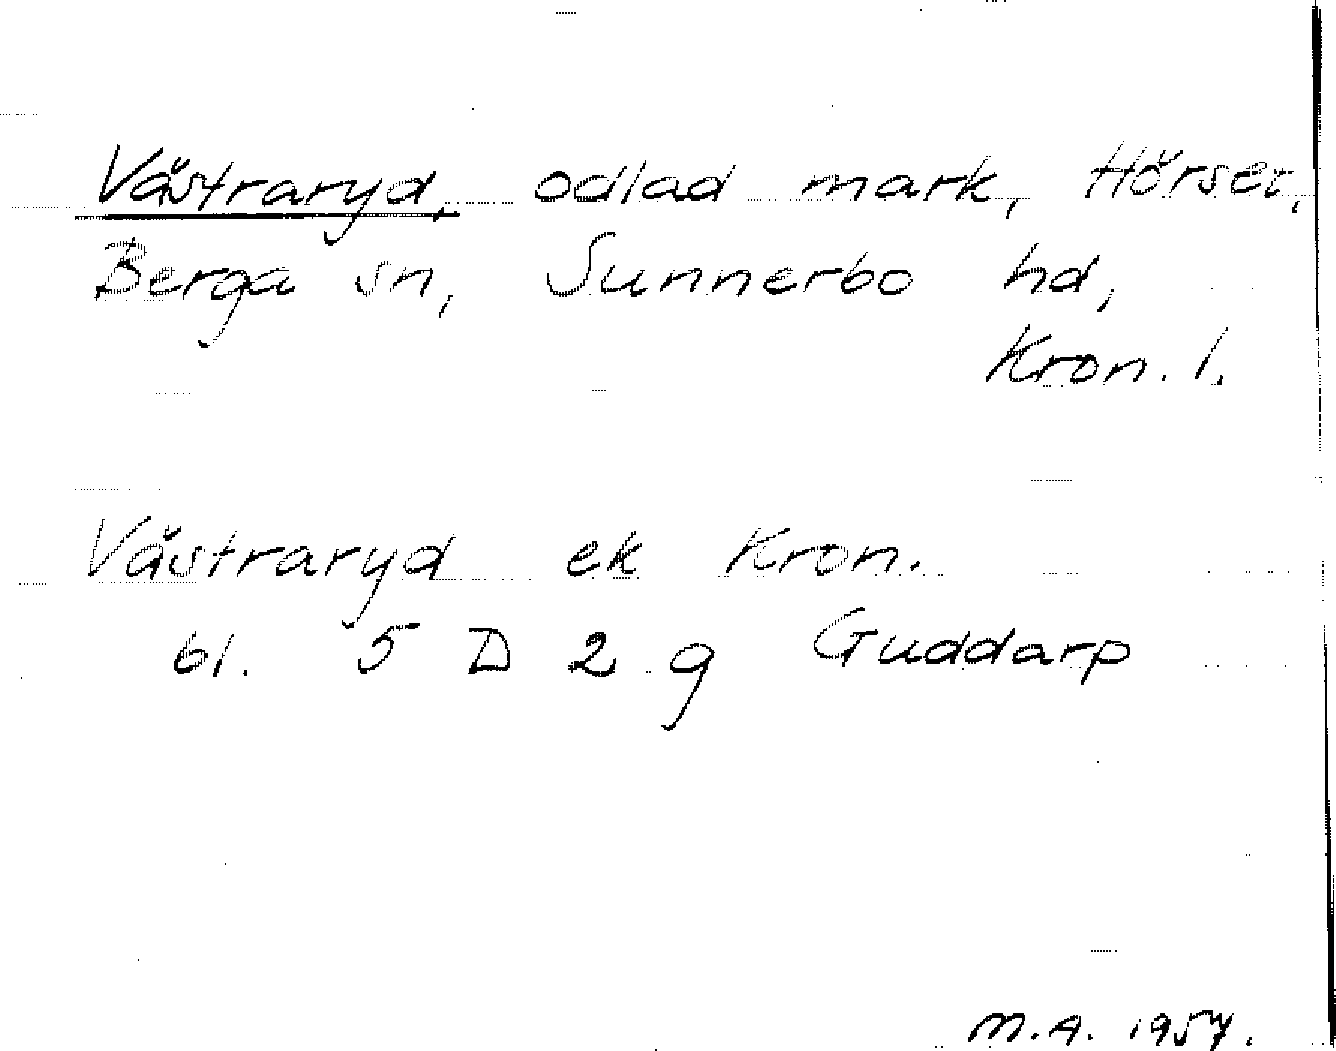 Västraryd, odlad mark, Hörset,
Berga sn, Sunnerbo hd,
Kron. l.
Västraryd ek Kron.
bl. 5 D 2 g Guddarp
M.A. 1957.